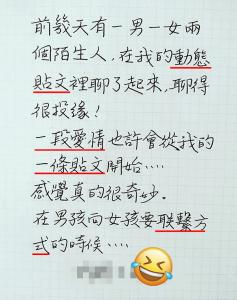 前幾天有一男一女兩
個陌生人,在我的動態
貼文裡聊了起來,聊得
很投緣!
一段愛情也許會從我的
一條貼文開始....
感覺真的很奇妙。
在男孩向女孩要聯繫方
式的時候....